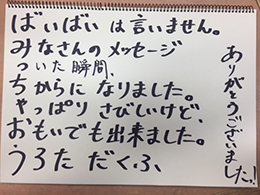 ばいばい は言いません。
みなさんの メッセージ
ついた 瞬間、
ちからに なりました。
やっぱり さびしいけど、
おもいでも 出来ました。
うろた だくふ、
ありがとうございました!